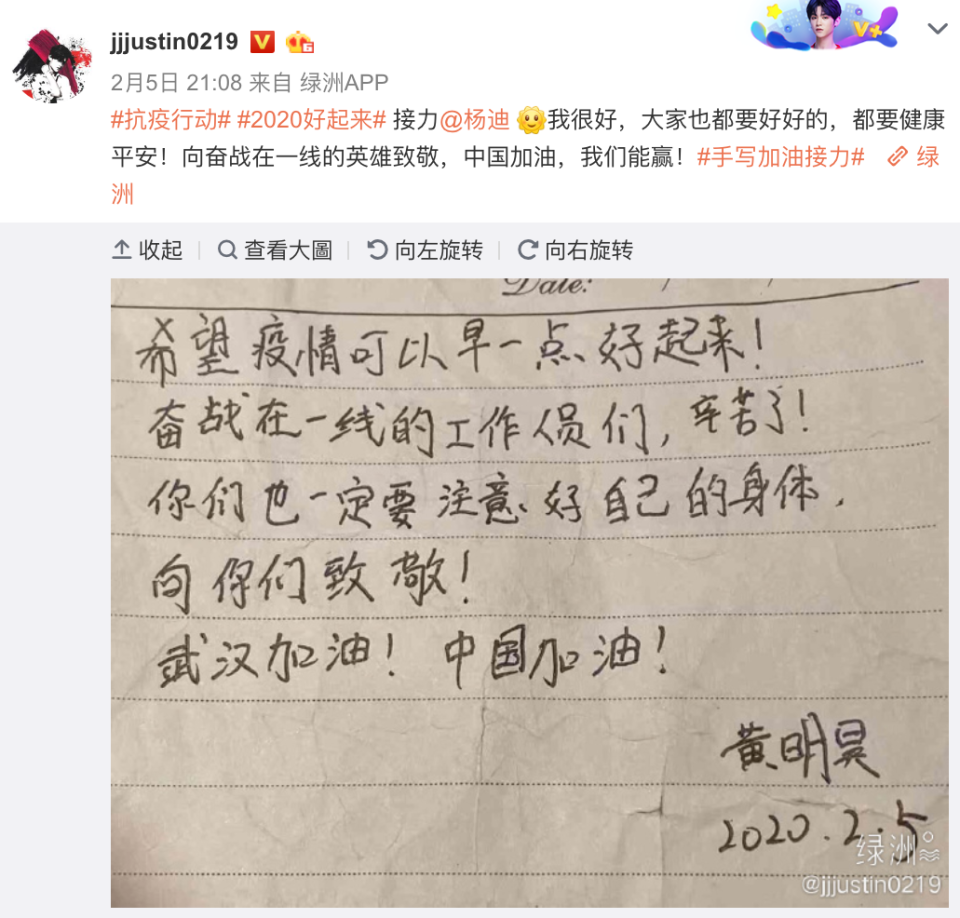 jjjustin0219 V 6
V+
2月5日 21:08 来自 绿洲APP
#抗疫行动# #2020好起来# 接力@杨迪 我很好，大家也都要好好的，都要健康
平安！向奋战在一线的英雄致敬，中国加油，我们能赢！#手写加油接力# 绿
洲
收起 查看大圖 向左旋转 向右旋转
Date: / /
希望疫情可以早一点好起来！
奋战在一线的工作人员们，辛苦了！
你们也一定要注意好自己的身体.
向你们致敬！
武汉加油！中国加油！
黄明昊
2020.2.5
绿洲
@jjjustin0219